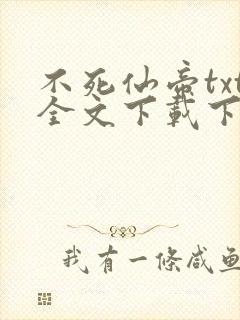 不死仙帝txt
全文下載下
我有一條咸鱼